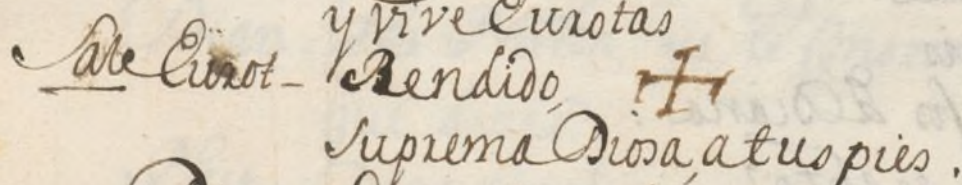 y vive Eurotas
Sale Eurot- Rendido,
suprema Diosa, a tus pies.